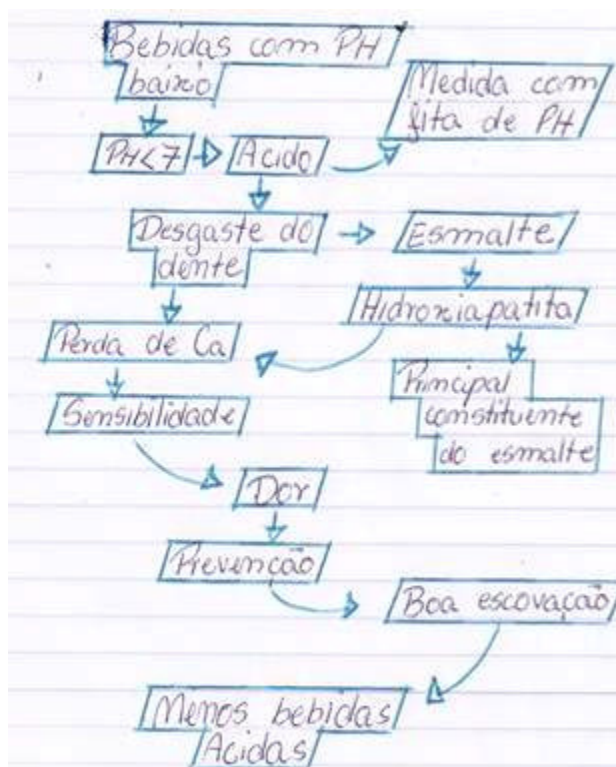 Bebidas com PH
baixo
Medida com
fita de PH
PH<7
Acido
Desgaste do
dente
Esmalte
Hidroxiapatita
Perda de Ca
Principal
constituente
do esmalte
Sensibilidade
Dor
Prevenção
Boa escovação
Menos bebidas
Acidas